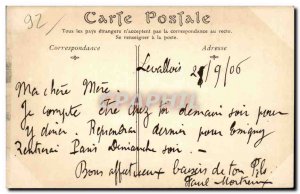 92
Carte Postale
Tous les pays étrangers n'acceptent pas la correspondance au recto.
Se renseigner à la poste.
Correspondance
Adresse
Levallois 21/9/06
Ma chère Mère.
Je compte être chez toi demain soir pour
y diner. Reprendrai dernier pour
rentrerai Paris Dimanche soir. —
Bons affectueux baisers de ton fils
Paul